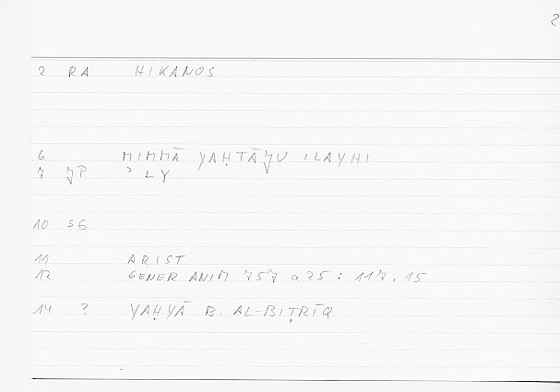 2
2 RA HIKANOS
6 MIMMĀ YAḤTĀǦU ILAYHI
7 JP ʾLY
10 SG
11 ARIST
12 GENER ANIM 757 a 25 : 117, 15
14 ? YAḤYĀ B. AL-BIṬRĪQ